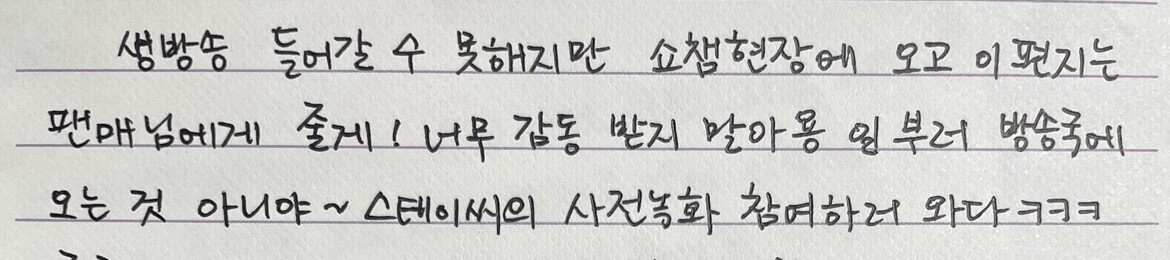 생방송 들어갈 수 못해지만 쇼챔현장에 오고 이 편지는
팬매님에게 줄게! 너무 감동 받지 말아용 일부러 방송국에
오는 것 아니야~ 스테이씨의 사전녹화 참여하러 와다 ㅋㅋㅋ